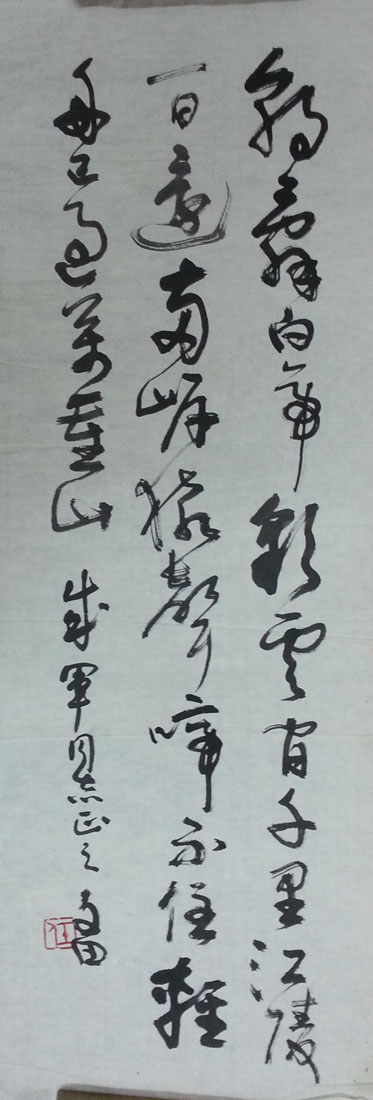 朝辭白帝彩雲間千里江陵
一日還兩岸猿聲啼不住輕
舟已過萬重山 成軍同志正之